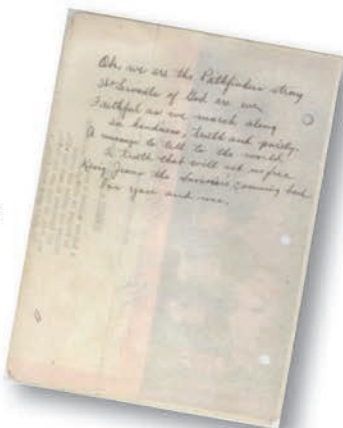 Oh, we are the Pathfinders strong
The Servants of God are we,
Faithful as we march along
In kindness, truth and purity.
A message to tell to the world
A truth that will set us free
King Jesus the Saviour's coming back
For you and me.